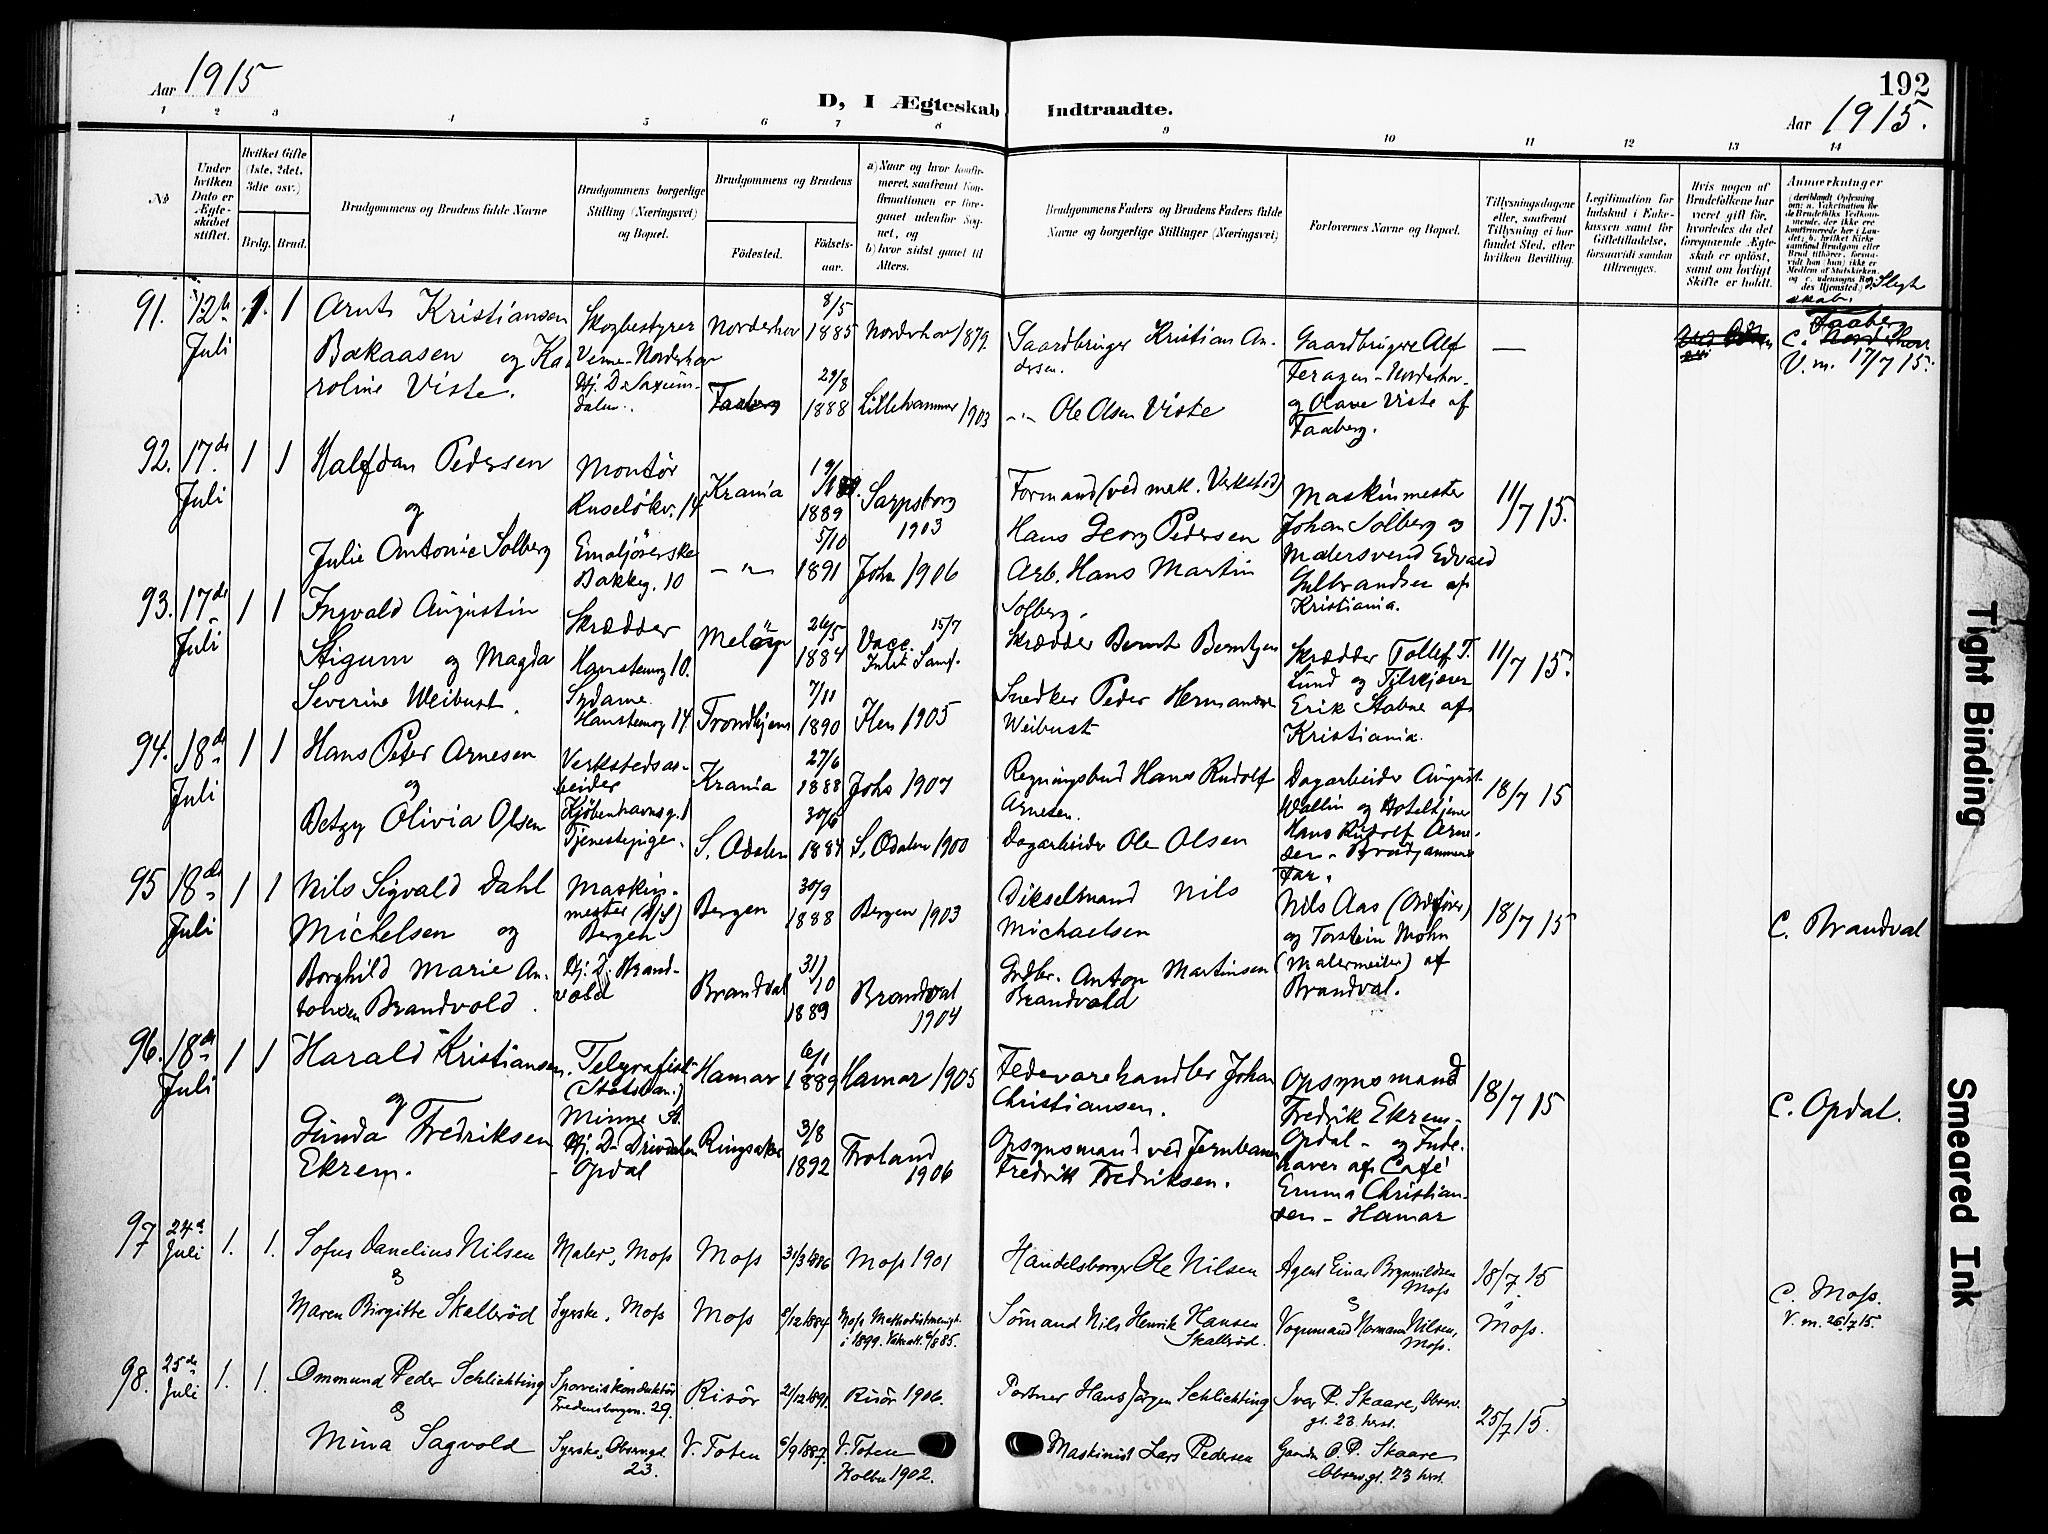 192
Aar 1915
D, I Ægteskab Indtraadte.
Aar 1915.
1 2 3 4 5 6 7 8 9 10 11 12 13 14
No
Under hvilken Dato er Ægteskabet stiftet.
Hvilket Gifte (1ste, 2det, 3die osv.)
Brdg. Brud.
Brudgommens og Brudens fulde Navne
Brudgommens borgerlige Stilling (Næringsvei) og Bopæl.
Brudgommens og Brudens
Fødested.
Fødselsaar.
a) Naar og hvor konfirmeret, saafremt Konfirmationen er foregaaet udenfor Sognet, og
b) hvor sidst gaaet til Alters.
Brudgommens Faders og Brudens Faders fulde Navne og borgerlige Stillinger (Næringsvei)
Forlovernes Navne og Bopæl.
Tillysningsdagene eller, saafremt Tillysning ei har fundet Sted, efter hvilken Bevilling.
Legitimation for Indskud i Enkekassen samt for Giftetilladelse, forsaavidt saadan tiltrenges.
Hvis nogen af Brudefolkene har været gift før, hvorledes da det foregaaende Ægteskab er opløst, samt om lovligt Skifte er holdt.
Anmærkninger
91. 12te Juli 1 1
Arnt Kristiansen
Bakaasen og Karoline Viste.
Skogbestyrer
Veme-Norderhov
Norderhov 8/5 1885 Norderhov 1879.
Faaberg 29/8 1888 Lillehammer 1903
Gaardbruger Kristian Andersen.
-"- Ole Olsen Viste
Gaardbrugere Alf
Feragen - Norderhov
og Olave Viste af
Faaberg.
—
Slegtskab.
Faaberg
C. Norderhov
V.m. 17/7 15.
92. 17de Juli 1 1
Halfdan Pedersen
og
Julie Antonie Solberg
Montør
Ruseløkv. 14
Emaljørerske
Bakkeg. 10
Krania 1889 Sarpsborg 1903
-"- 5/10 1891 Joh. 1906
Formand (ved mek. Verksted)
Hans Georg Pedersen
Arb. Hans Martin
Solberg.
Maskinmester
Johan Solberg og
Malersvend Edvard
Gulbrandsen af
Kristiania.
11/7 15.
93. 17de Juli 1 1
Ingvald Augustin
Stigum og Magda
Severine Weibust.
Skrædder
Hansteensg 10.
Sydame
Hansteensg 14
Meløy 26/5 1884 Vacc. 15/7
Trondhjem 7/11 1890 Ilen 1905
Skrædder Bernt Berntsen
Snedker Peder Hermansen
Weibust
Skrædder Tollef T.
Lund og Tilskjærer
Erik Stabne af
Kristiania.
11/7 15.
94. 18de Juli 1 1
Hans Peter Arnesen
og
Betzy Olivia Olsen
Verkstedsarbeider
Kjøbenhavnsg. 1
Tjenestepige.
Krania 27/6 1888 Johs 1907
S. Odalen 30/6 1884 S. Odalen 1900
Regningsbud Hans Rudolf
Arnesen.
Dagarbeider Ole Olsen
Dagarbeider August
Wallin og Hotelkjener
Hans Rudolf Arnesen - Brudgommens
Far.
18/7 15
95 18de Juli 1 1
Nils Sigvald Dahl
Michelsen og
Borghild Marie Antonsen Brandvold.
Maskinmester (D/S)
Bergen
Hj. D. Brandvold
Bergen 30/9 1888 Bergen 1903
Brandval 31/10 1889 Brandval 1904
Dikselmand Nils
Michaelsen
Grdbr. Anton Martinsen
Brandvold
Nils Aas (Ordfører)
og Torstein Mohn
(Malermester) af
Brandval.
18/7 15
C. Brandval
96. 18de Juli 1 1
Harald Kristiansen
og
Gunda Fredriksen
Ekrem.
Telegrafist
(Statsban.)
Minne St.
Hj. D- Drivdalen
- Opdal
Hamar 6/1 1889 Hamar 1905
Ringsaker 3/8 1892 Froland 1906
Fedevarehandler Johan
Christiansen.
Opsynsmand ved Jernbanen
Fredrik Fredriksen.
Opsynsmand
Fredrik Ekrem-
Opdal - og Indehaver af Café
Emma Christiansen - Hamar
18/7 15
C. Opdal.
97 24de Juli 1. 1.
Sofus Danelius Nilsen
&
Maren Birgitte Skallerød
Maler, Moss
Syerske, Moss
Moss 31/3 1886 Moss 1901
Moss 8/12 1884 Moss Methodistmenigh. i 1899. Vakcatt. 6/885.
Handelsborger Ole Nilsen
Sømand Nils Henrik Hansen
Skallerød.
Agent Einar Brynnildsen
Moss
&
Vognmand Normann Nilsen,
Moss.
18/7 15
Moss.
C. Moss.
V.m. 26/7 15.
98. 25de Juli 1. 1.
Ommund Peder Schlichting
&
Mina Sagvold
Sporveiskonduktør
Fredensborgvn. 29.
Syerske, Observgd. 23.
Risør 21/12 1891. Risør 1906.
V. Toten 6/9 1887. V. Toten
Kolbu 1902.
Portner Hans Jørgen Schlichting
Maskinist Lars Pedersen
Ivar P. Skaare, Observ.
gt. 23 herst.
O. P. Skaare
Observ.gt. 23 herst.
25/7 15.
Tight Binding
Smeared Ink